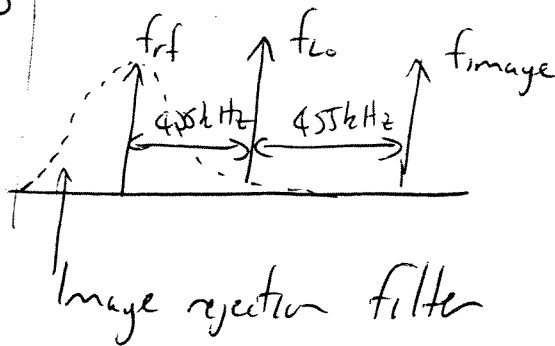 frf
fLo
fimage
455kHz
455kHz
Image rejection filter